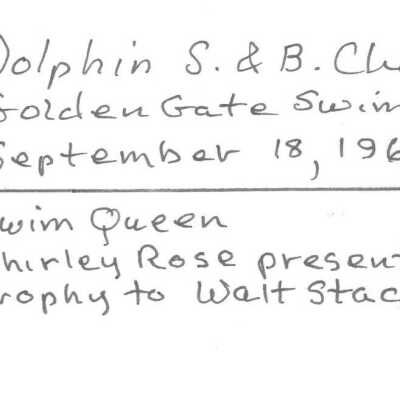 Dolphin S. & B. Clu
Golden Gate Swim
September 18, 196
wim Queen
hirley Rose present
rophy to Walt Stac